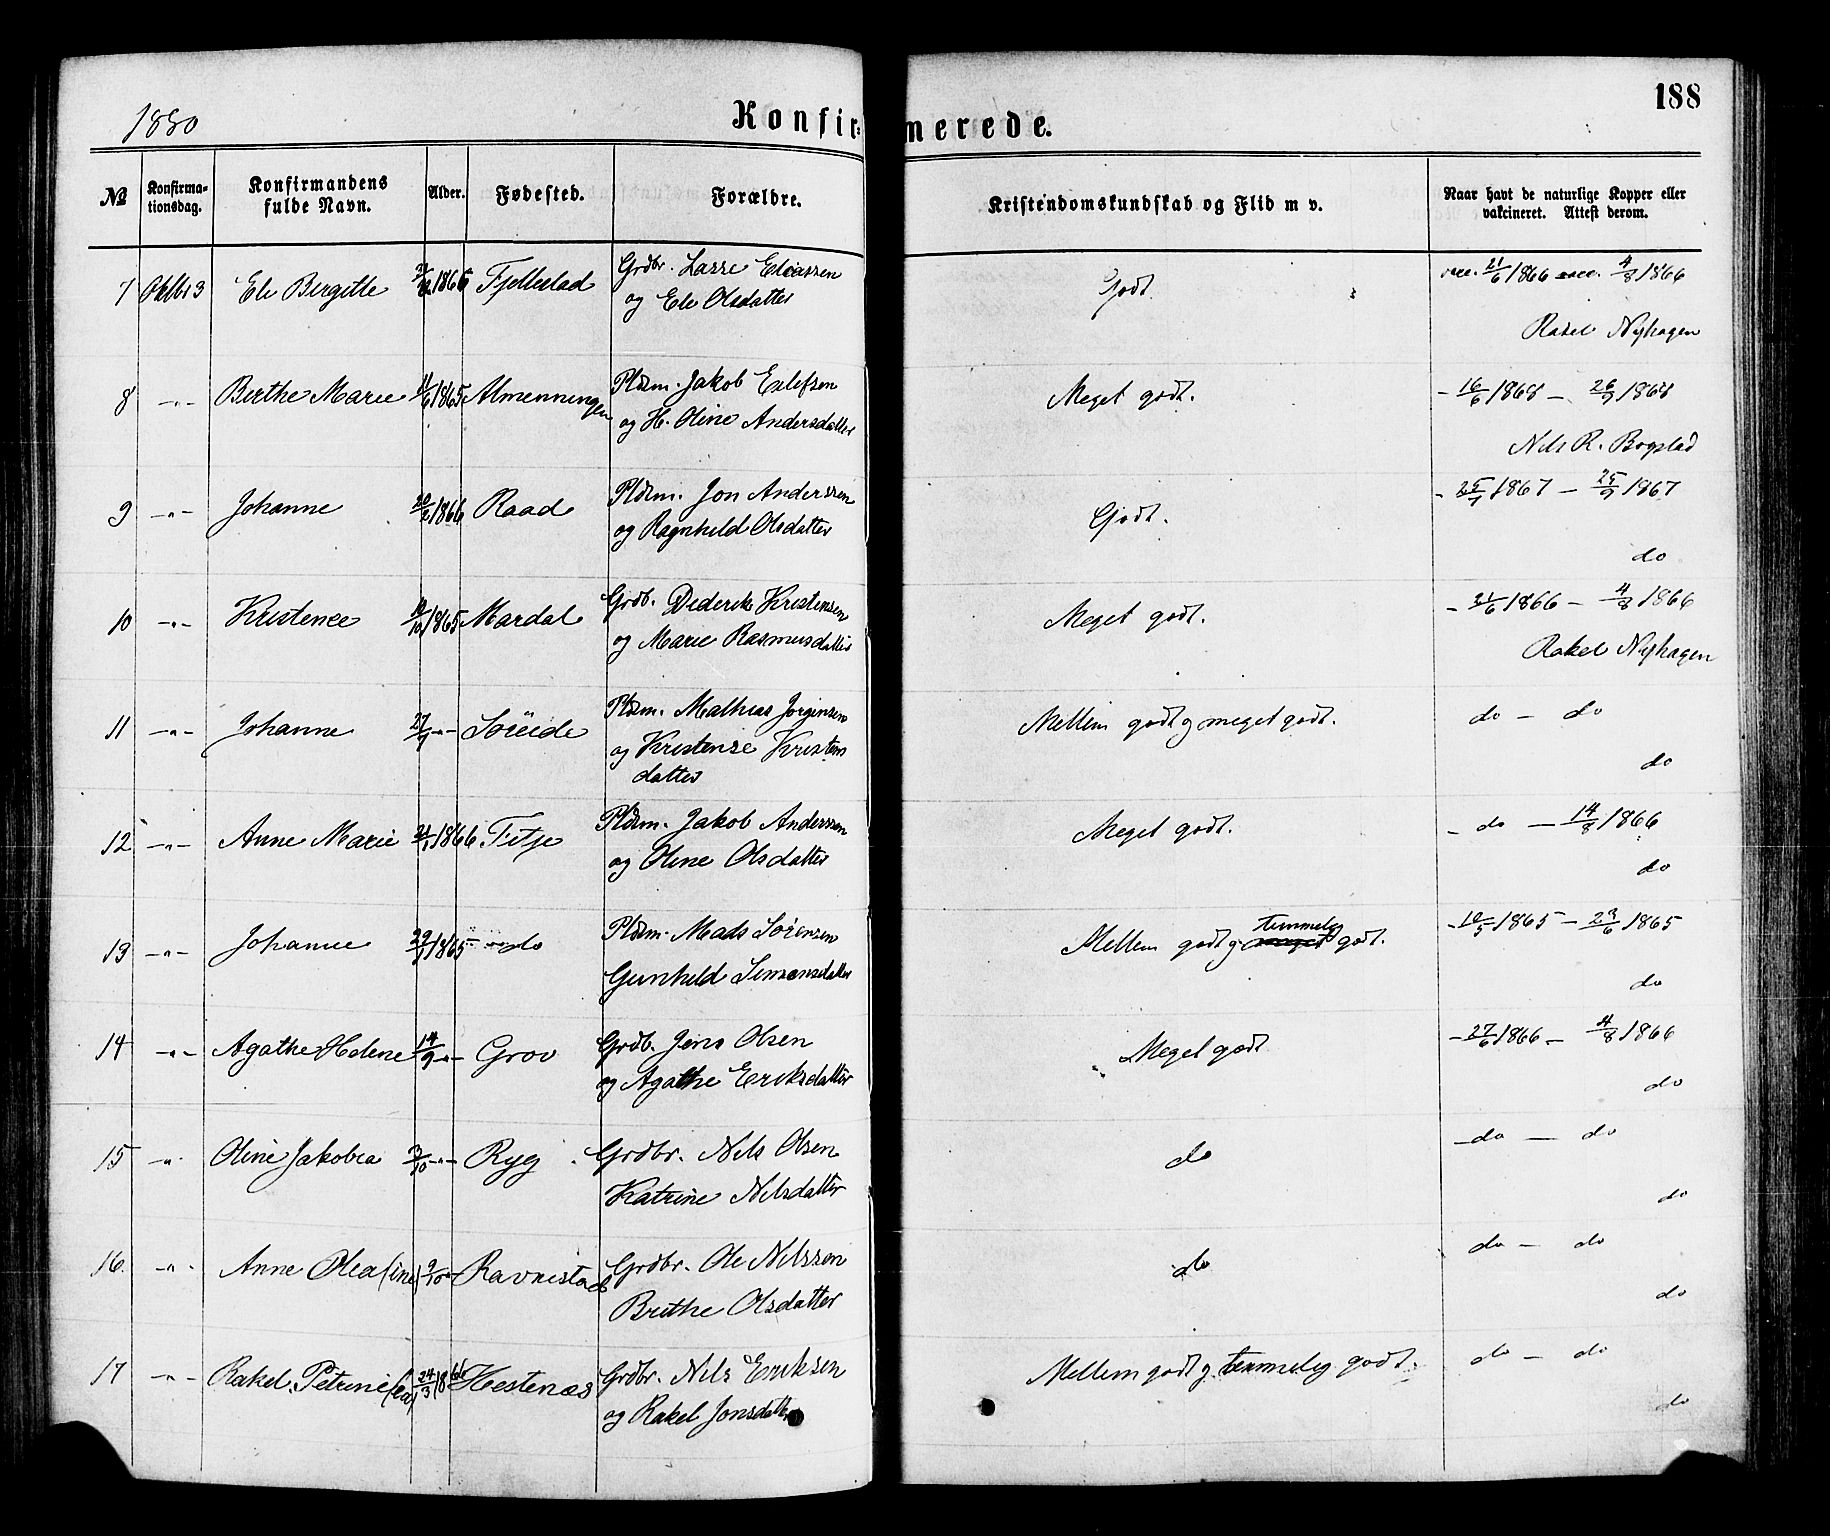 1880
Konfir-
merede.
188
№
Konfirma-
tionsdag.
Konfirmandens
fulde Navn.
Alder.
Fødested.
Forældre.
Kristendomskundskab og Flid m v.
Naar havt de naturlige Kopper eller
vakcineret. Attest derom.
7 Oktbr 3 Eli Birgitte 1865 Fjellestad Grdbr. Lasse Eliassen
og Eli Olsdatter
Godt.
vac. 21/6 1866 4/8 1866
Rakel Nyhagen
8 -"- Berthe Marie 11/6 1865 Almenningen Pldsm. Jakob Eilefsen
og H. Oline Andersdatter
Meget godt.
- 16/6 1868 - 26/9 1868
Nils R. Bogstad
9 -"- Johanne 1866 Raad Pldsm. Jon Anderssen
og Ragnhild Olsdatter
Godt.
- 25/7 1867 - 25/9 1867
do
10 -"- Kristence 14/10 1865 Mardal Grdb. Diderik Kristensen
og Marie Rasmusdatter
Meget godt.
- 21/6 1866 - 4/8 1866
Rakel Nyhagen
11 -"- Johanne 27/9 -"- Söreide Pldsm. Mathias Jørgensen
og Kristense Kristens
datter
Mellem godt og meget godt.
do - do
do
12 -"- Anne Marie 21/1 1866 Fitje Pldsm. Jakob Anderssen
og Oline Olsdatter
Meget godt.
- do - 14/8 1866
do
13 -"- Johanne 29/1 1865 do Pldsm. Mads Sørensen
Gunhild Simonsdatter
temmelig
Mellem godt og meget godt.
- 10/5 1865 - 23/6 1865
do
14 -"- Agathe Helene 14/9 -"- Grov Grdb. Jens Olsen
og Agathe Eriksdatter
Meget godt
- 27/6 1866 - 4/8 1866
do
15 -"- Oline Jakobea 3/10 -"- Ryg Grdbr. Nils Olsen
Katrine Nilsdatter
do
- do - do
do
16. -"- Anne Olea (ine) 9/10 -"- Ravnestad Grdbr. Ole Nilssen
Brithe Olsdatter
do
do - do
do
17 -"- Rakel Petrine (ea) 24/3 1866 Hestenæs Grdbr. Nils Eriksen
og Rakel Jonsdatter
Mellem godt og temmelig godt.
do - do
do